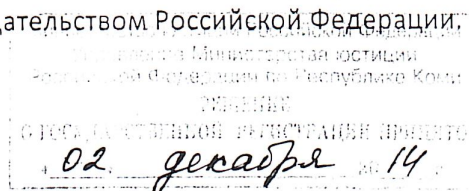 дательством Российской Федерации.
Министерства юстиции
Российской Федерации по Республике Коми
РЕШЕНИЕ
О ГОСУДАРСТВЕННОЙ РЕГИСТРАЦИИ ПРИНЯТО
«02. декабря 2014 г.